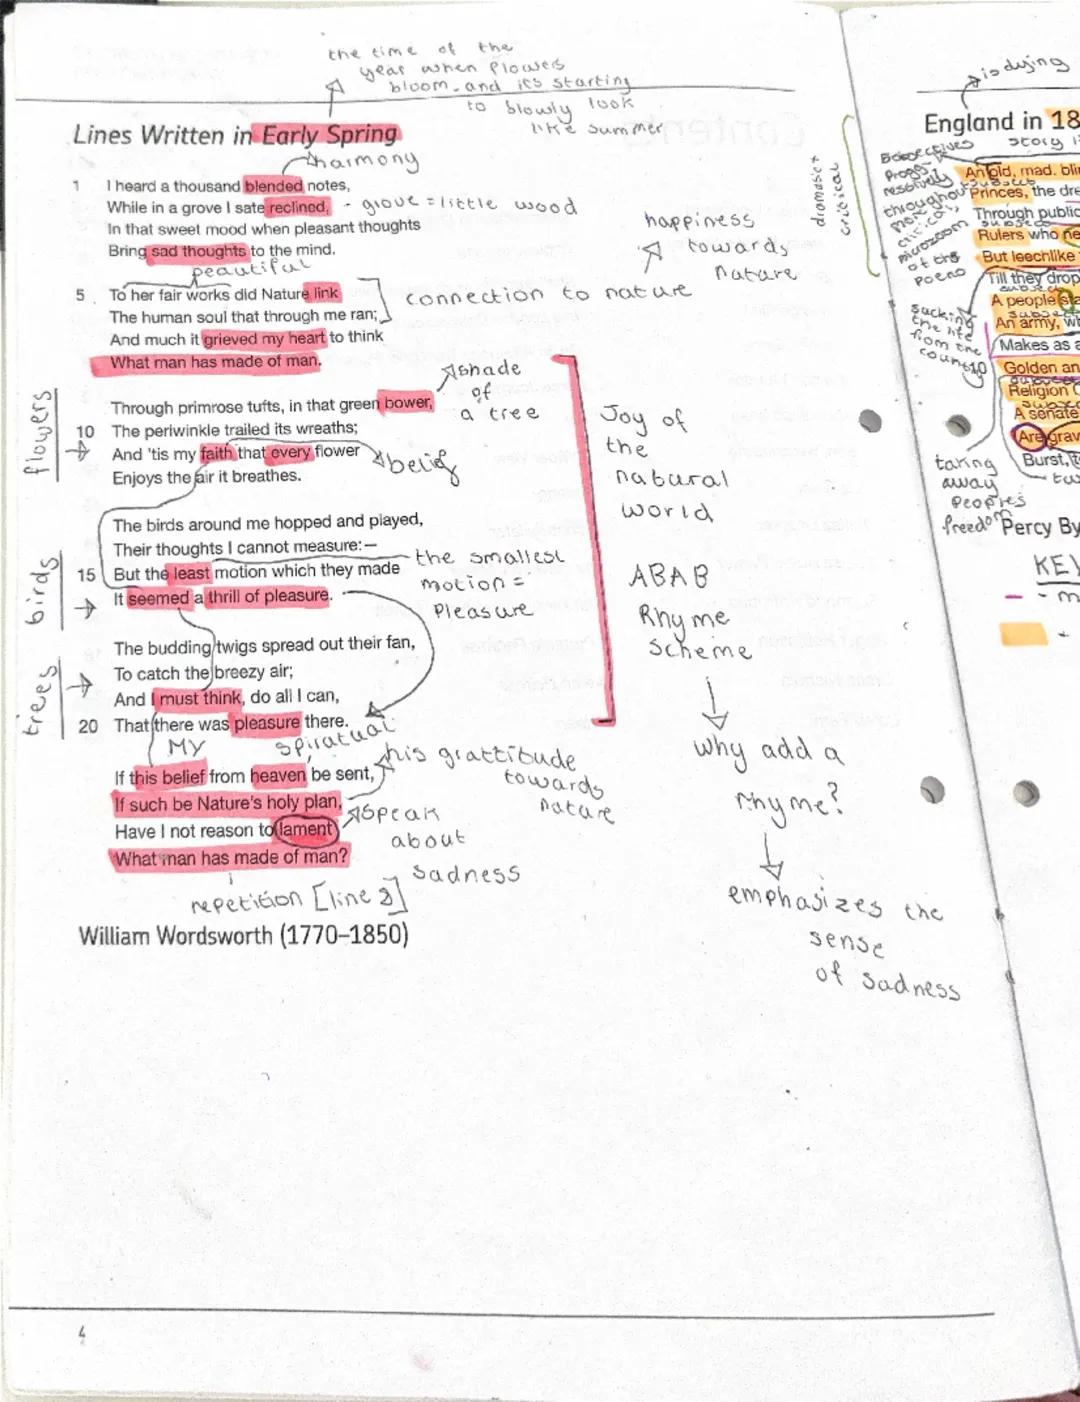 the time of the
year when flowers
bloom and its starting
to slowly look
like summer
Lines Written in Early Spring
harmony
1 I heard a thousand blended notes,
While in a grove I sate reclined, - grove = little wood
In that sweet mood when pleasant thoughts
Bring sad thoughts to the mind.
peautiful
happiness
towards
nature
5 To her fair works did Nature link
The human soul that through me ran;
connection to nature
And much it grieved my heart to think
What man has made of man.
flowers
Through primrose tufts, in that green bower,
shade
of
a tree
10 The periwinkle trailed its wreaths;
And 'tis my faith that every flower
belief
Enjoys the air it breathes.
birds
The birds around me hopped and played,
Their thoughts I cannot measure:—
15 But the least motion which they made
It seemed a thrill of pleasure.
the smallest
motion =
Pleasure
trees
The budding twigs spread out their fan,
To catch the breezy air;
And I must think, do all I can,
20 That there was pleasure there.
MY
spiratual
If this belief from heaven be sent,
his grattitude
towards
nature
If such be Nature's holy plan,
Have I not reason to lament
speak
about
sadness
What man has made of man?
repetition [line 8]
William Wordsworth (1770–1850)
Joy of
the
natural
world
ABAB
Rhyme
Scheme
why add a
rhyme?
emphasizes the
sense
of sadness
4
is dying
England in 18
story
dramatic +
critical
throughout
of the
poem
An old, mad, blin
Princes, the dre
Through public
Rulers who ne
But leechlike
Till they drop
A people sta
An army, wh
Makes as a
10 Golden an
Religion C
A senate
Are grav
Burst, t
sucking
the life
from the
country
taking
away
Peoples
freedom
Percy By
KEY